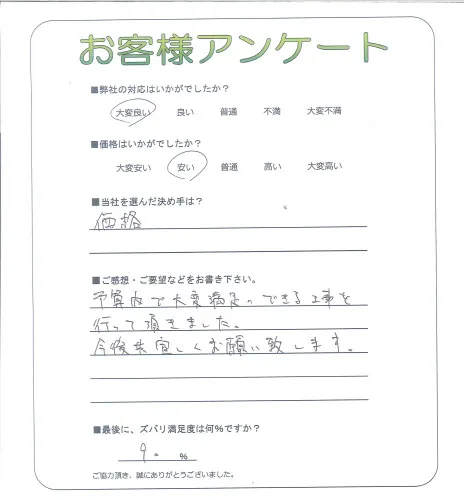 お客様アンケート
■弊社の対応はいかがでしたか?
大変良い 良い 普通 不満 大変不満
■価格はいかがでしたか?
大変安い 安い 普通 高い 大変高い
■当社を選んだ決め手は?
価格
■ご感想・ご要望などをお書き下さい。
予算内で大変満足のできる工事を
行って頂きました。
今後共宜しくお願い致します。
■最後に、ズバリ満足度は何%ですか?
90 %
ご協力頂き、誠にありがとうございました。